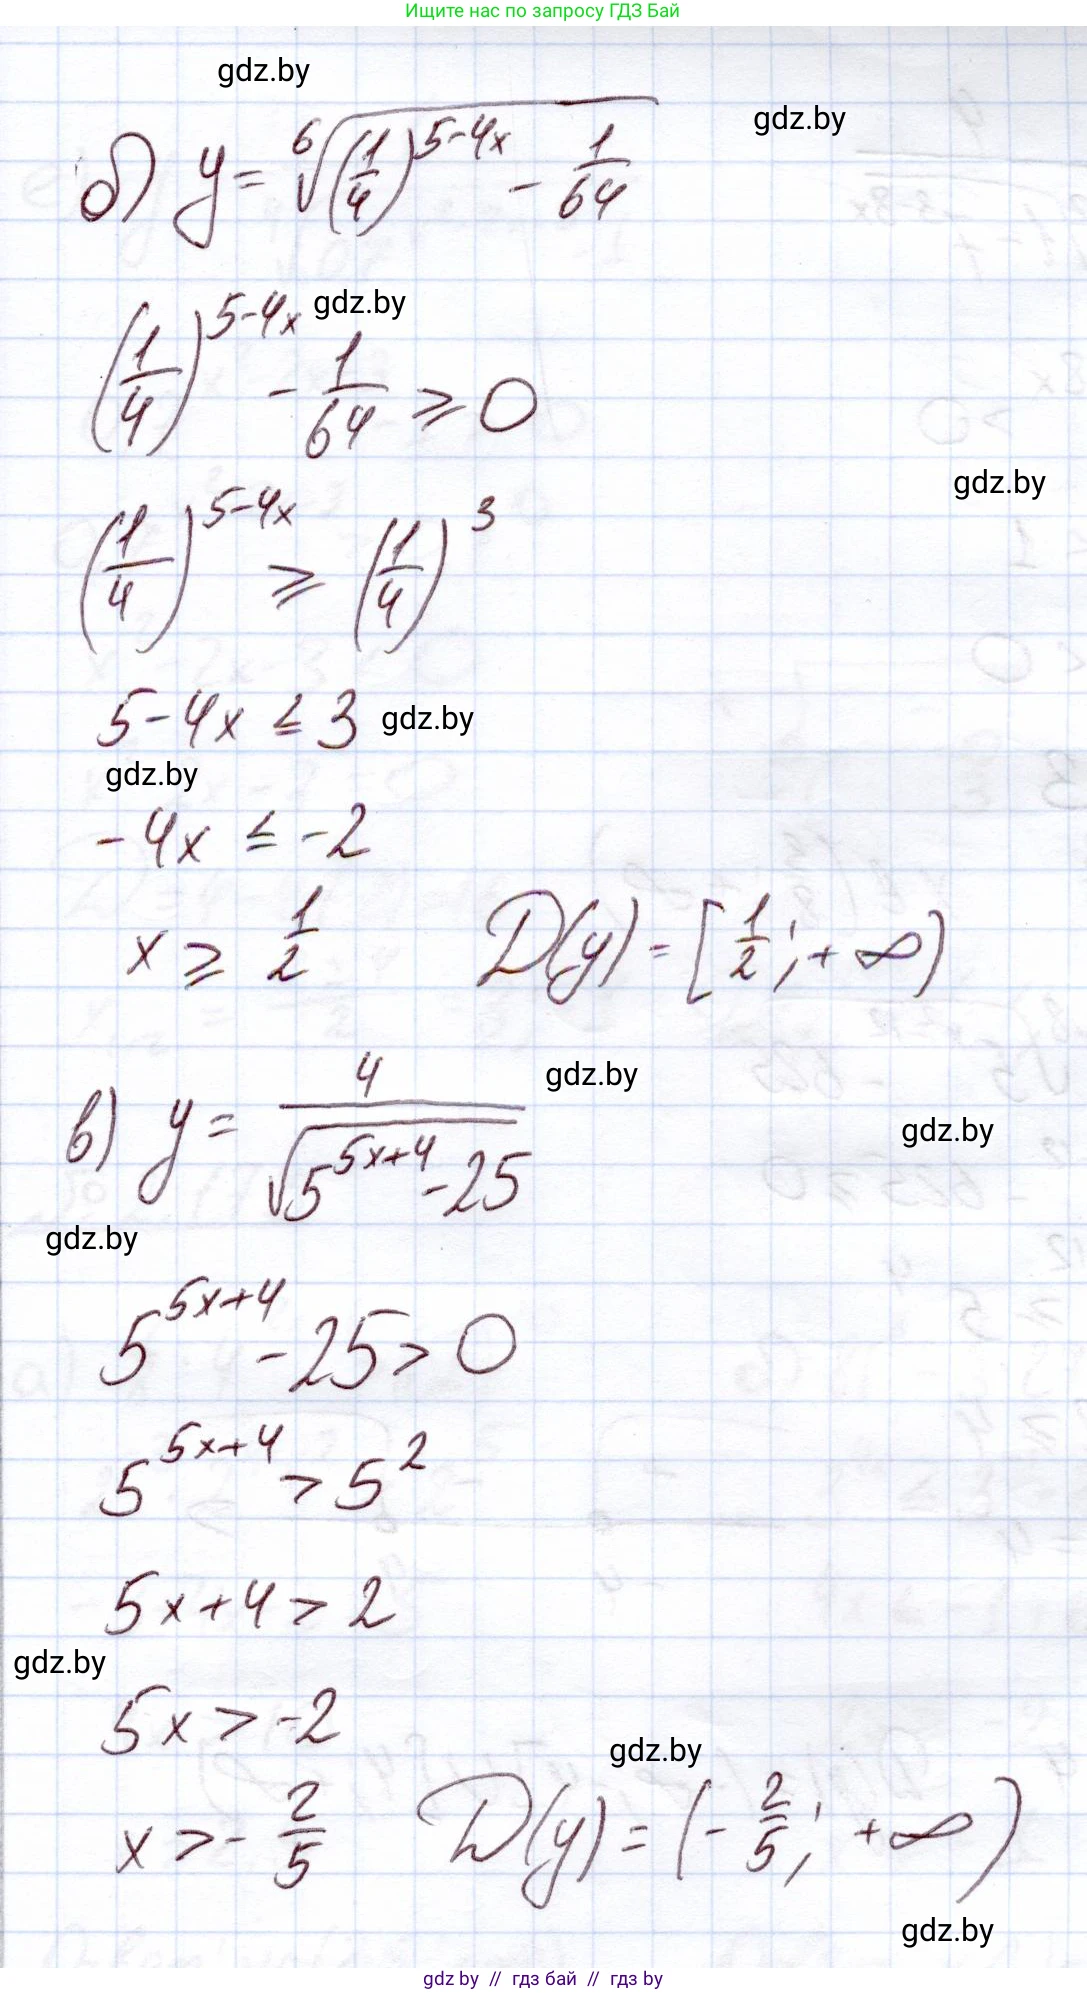 Ищите нас по запросу ГДЗ Бай
gdz.by
gdz.by
б) y = ⁶√((1/4)^(5-4x) - 1/64)
gdz.by
(1/4)^(5-4x) - 1/64 ≥ 0
gdz.by
(1/4)^(5-4x) ≥ (1/4)^3
5-4x ≤ 3 gdz.by
gdz.by
-4x ≤ -2
x ≥ 1/2 D(y) = [1/2; +∞)
gdz.by
в) y = 4/√(5^(5x+4) - 25)
gdz.by
gdz.by
5^(5x+4) - 25 > 0
5^(5x+4) > 5^2
5x+4 > 2
gdz.by
5x > -2
gdz.by
x > -2/5 D(y) = (-2/5; +∞)
gdz.by
gdz by // гдз бай // гдз by